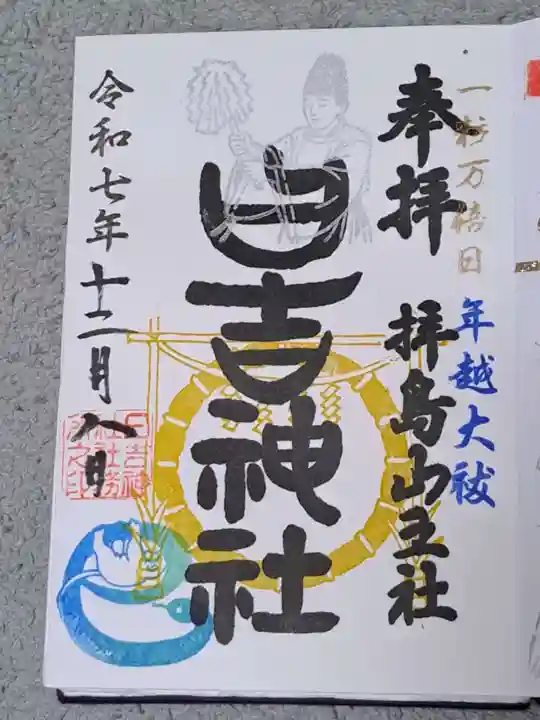 一粒万倍日
年越大祓
奉拝
拝島山王社
日吉神社
令和七年十二月八日
日吉神
社社務
所之印